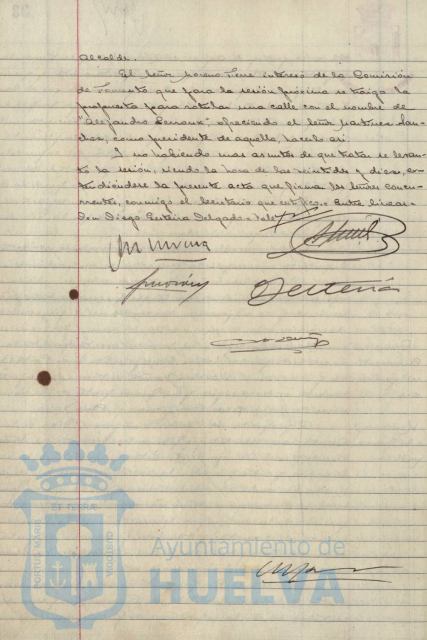 Alcalde.
El Señor Moreno tiene interés de la Comisión
de Fomento que para la sesión próxima se traiga la
propuesta para rotular una calle con el nombre de
"Alejandro Lerroux" ofreciendo el Señor Martínez San-
chez, como presidente de aquella, hacerlo así.
Y no habiendo mas asuntos de que tratar se levan-
tó la sesión, siendo la hora de las veintidós y diez, ex-
tendiéndose la presente acta que firman los señores concu-
rrentes, conmigo el Secretario que certifico. Entre líneas-
Don Diego Delgado-Vale
PORTUS MARIS
ET TERRAE
CUSTODIA
Ayuntamiento de
HUELVA